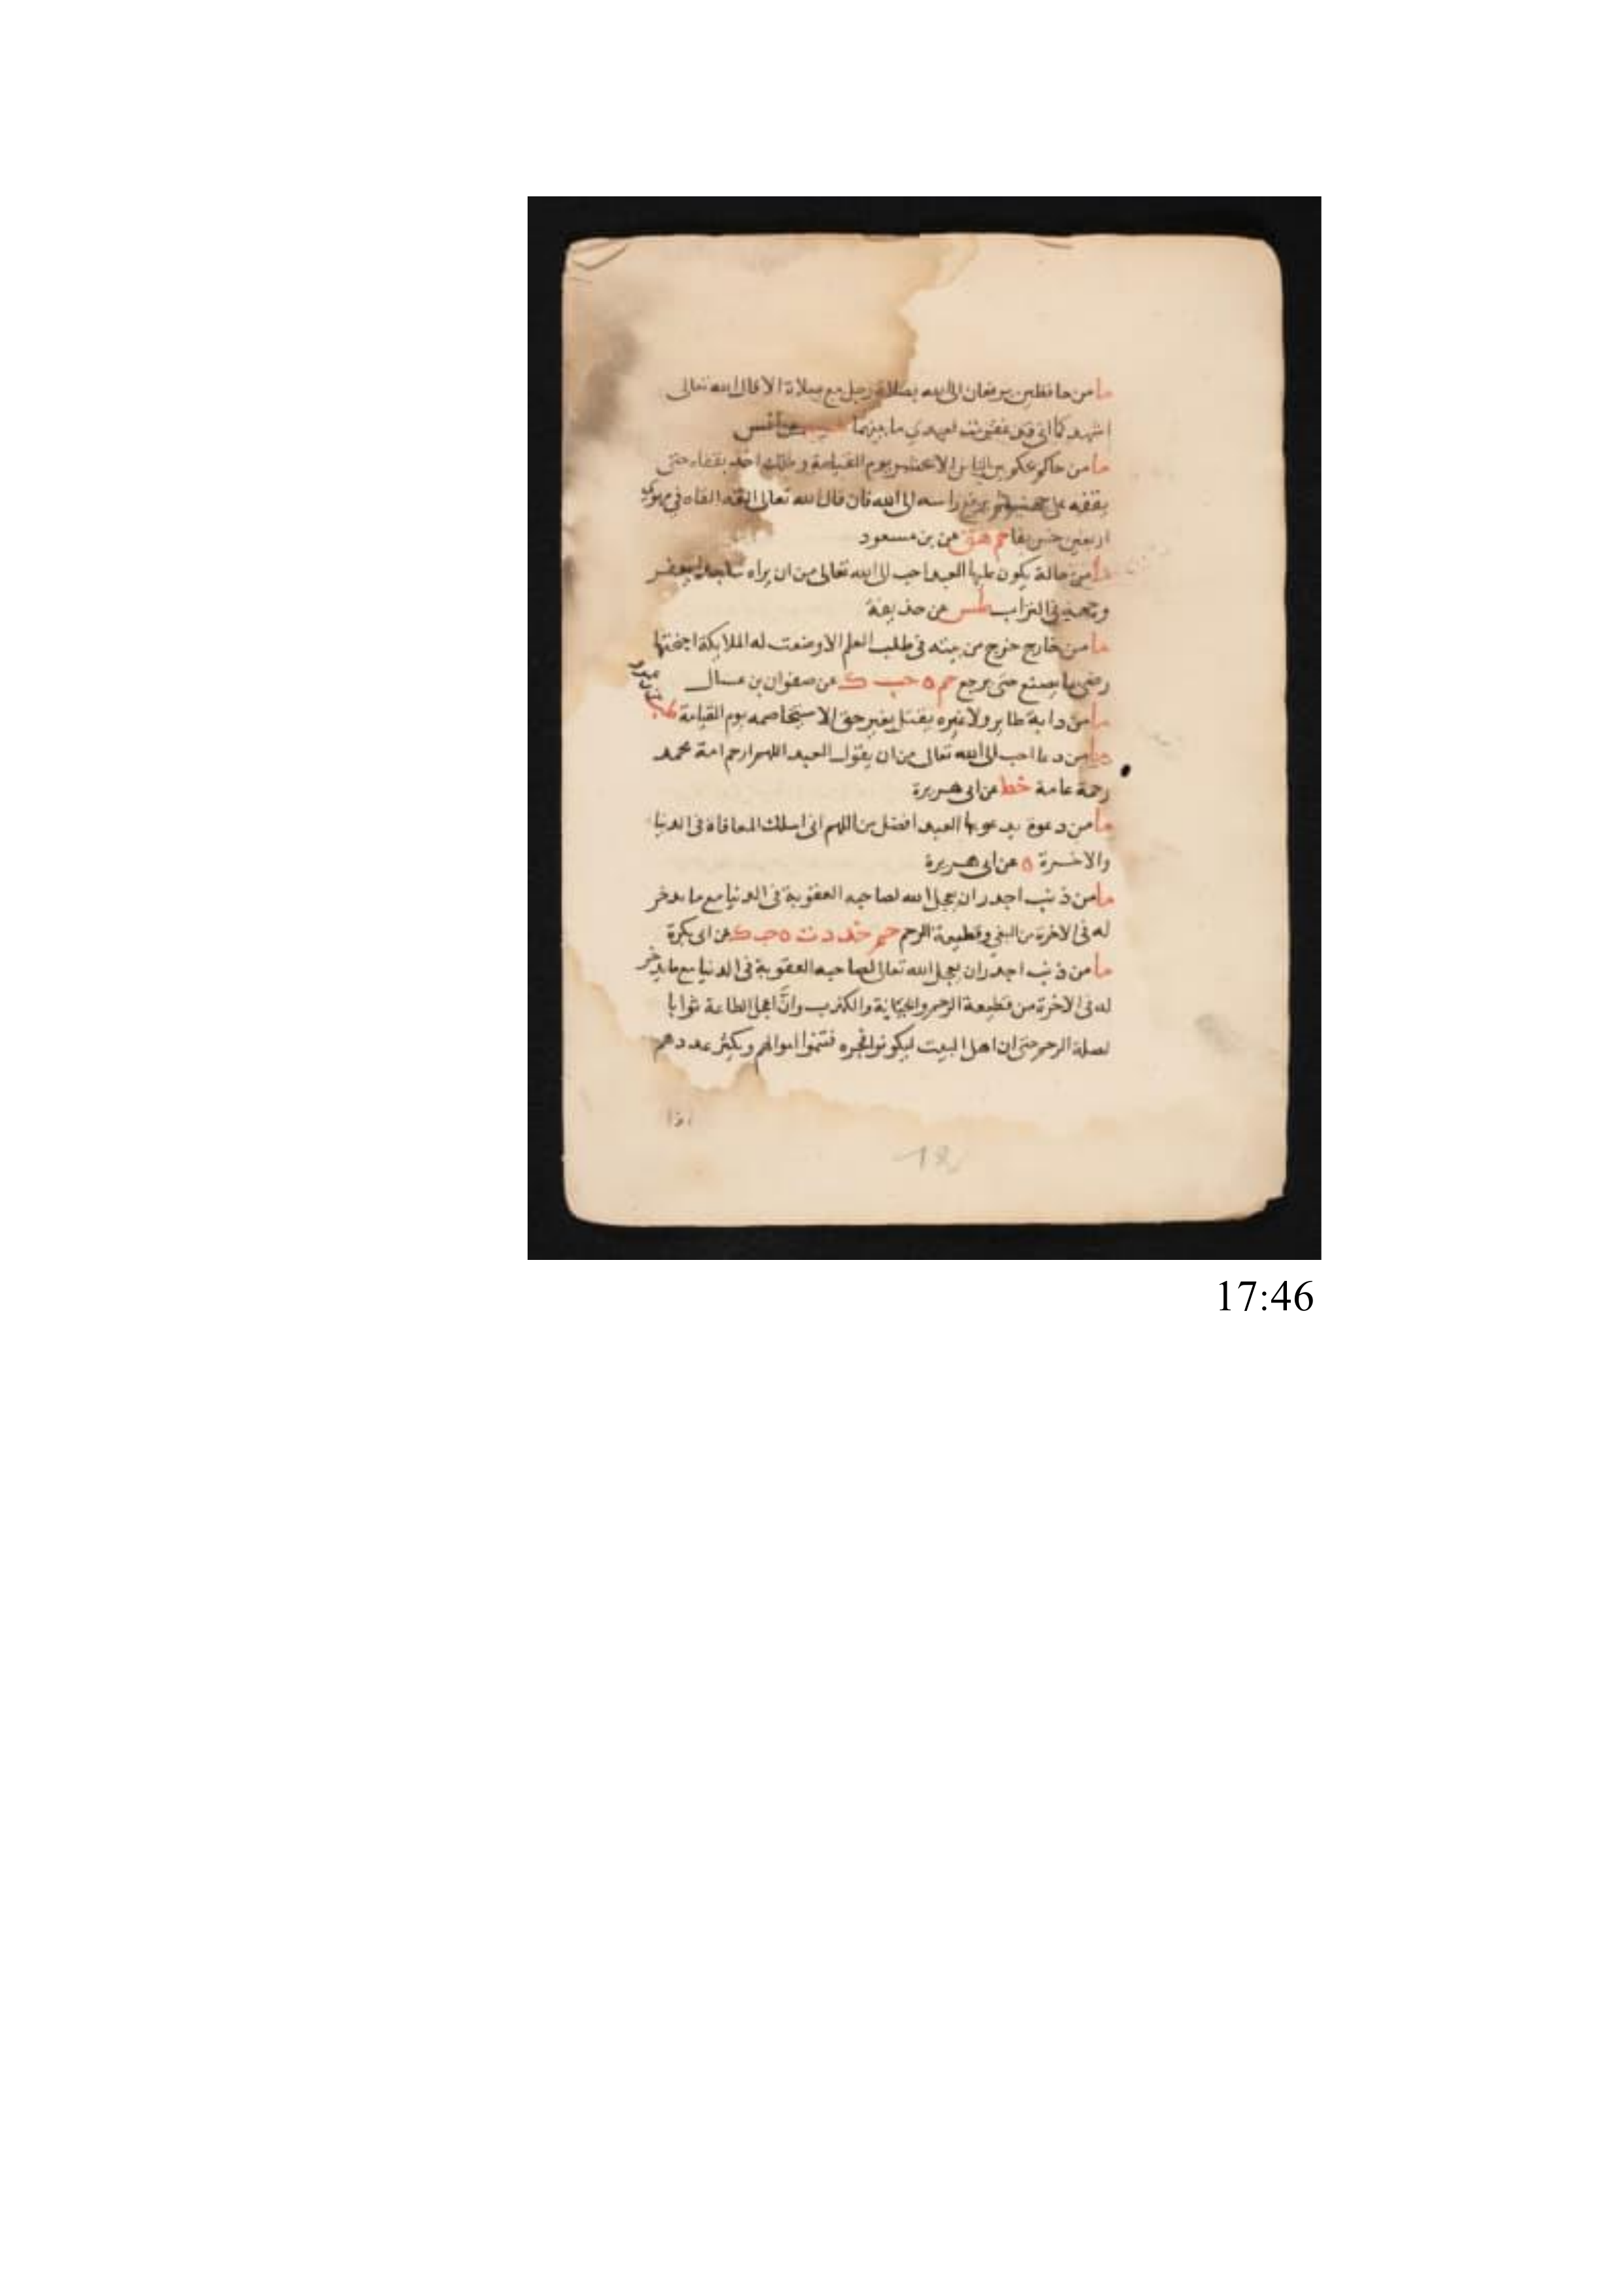 ما من حافظين يرفعان الى الله بصلاة رجل مع صلاة الا قال الله تعالى
اشهدكما انى قد غفرت لعبدي ما بينهما هب عن انس
ما من حاكم يحكم بين الناس الا يحشر يوم القيامة وملك اخذ بقفاه حتى
يقفه على جهنم ثم يرفع راسه الى الله فان قال الله تعالى القه القاه في مهوي
اربعين خريفا حم هق عن بن مسعود
ما من حالة يكون عليها العبد احب الى الله تعالى من ان يراه ساجدا يعفر
وجهه في التراب طس عن حذيفة
ما من خارج خرج من بيته في طلب العلم الا وضعت له الملايكة اجنحتها
رضى بما يصنع حتى يرجع حم ه حب ك عن صفوان بن عسال
ما من دابة طاير ولا غيره يقتل بغير حق الا سيخاصمه يوم القيامة طب
ما من دعا احب الى الله تعالى من ان يقول العبد اللهم ارحم امة محمد
رحمة عامة خط عن ابى هريرة
ما من دعوة يدعو بها العبد افضل من اللهم انى اسلك المعافاة فى الدنيا
والاخرة ه عن ابى هريرة
ما من ذنب اجدر ان يعجل الله لصاحبه العقوبة فى الدنيا مع ما يدخر
له فى الاخرة من البغي وقطيعة الرحم حم خد د ت ه حب ك عن ابى بكرة
ما من ذنب اجدر ان يعجل الله تعالى لصاحبه العقوبة فى الدنيا مع ما يدخر
له فى الاخرة من قطيعة الرحم والخيانة والكذب وانَّ اعجل الطاعة ثوابا
لصلة الرحم حتى ان اهل البيت ليكونوا فجره فتنموا اموالهم ويكثر عددهم
اذا
17:46